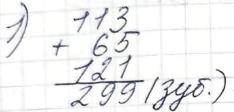 1) 113
+ 65
121
299 (зуб.)